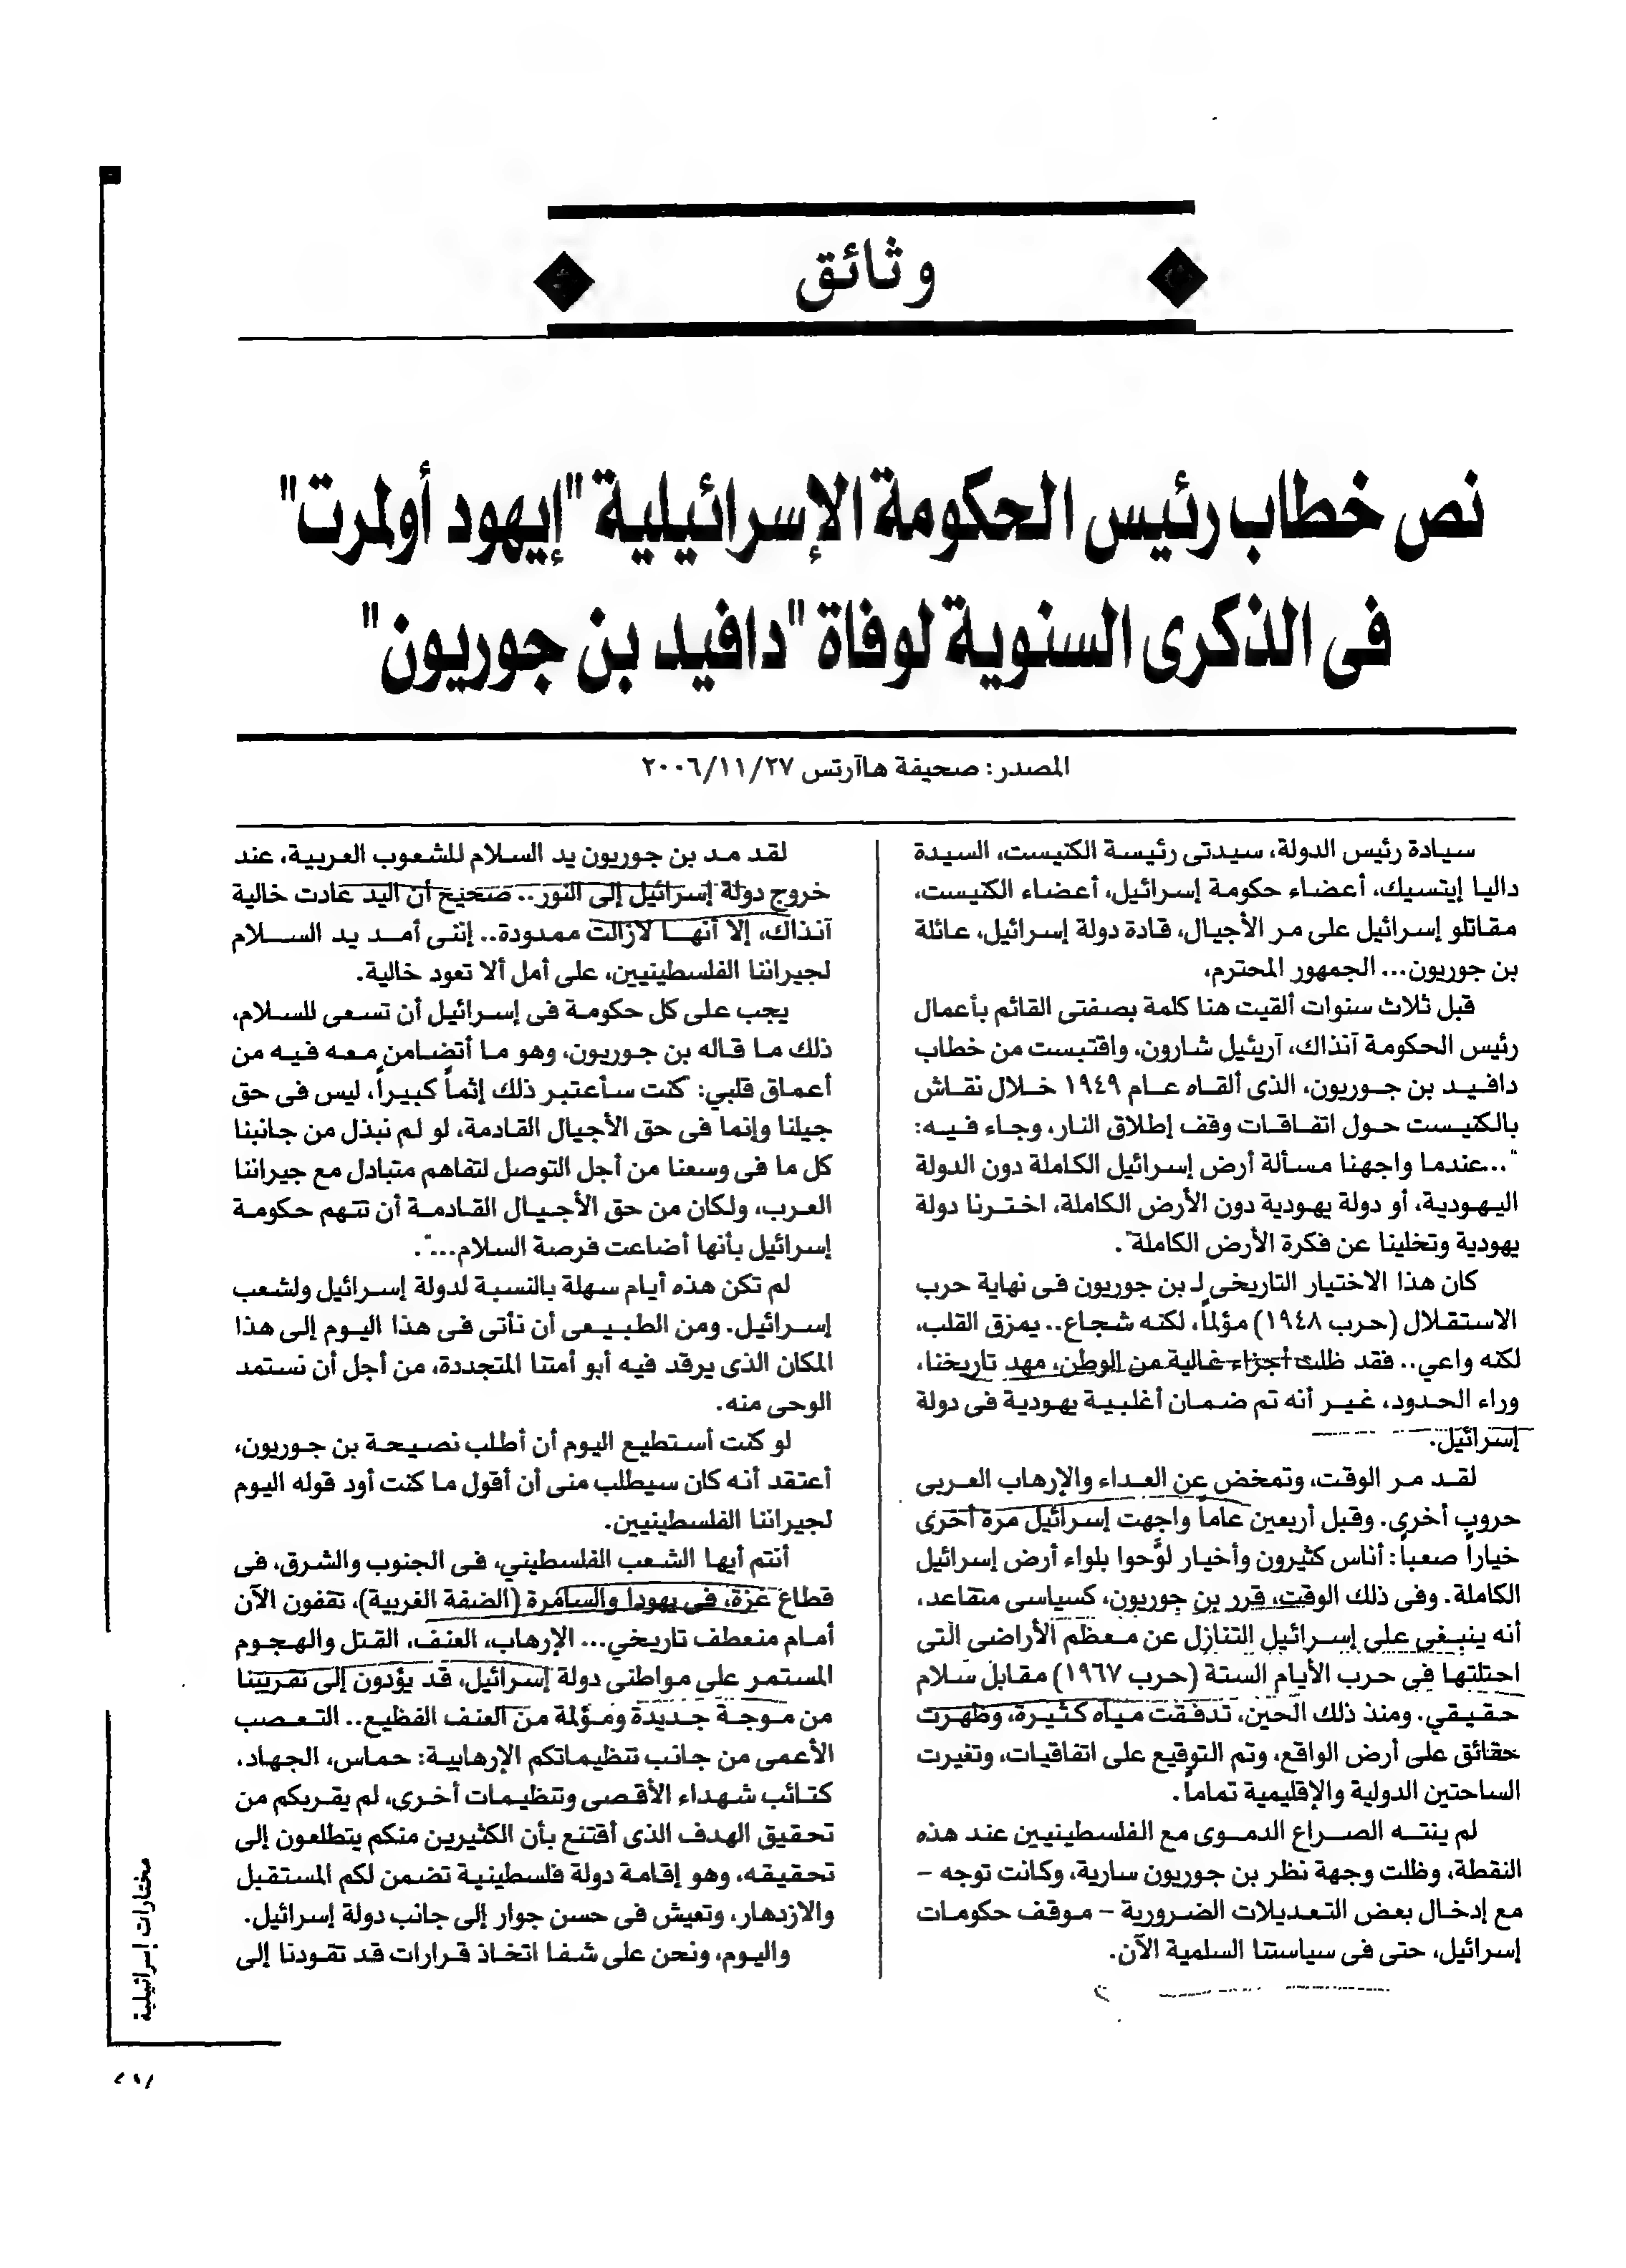 وثائق
نص خطاب رئيس الحكومة الإسرائيلية "إيهود أولمرت"
فى الذكرى السنوية لوفاة "دافيد بن جوريون"
المصدر: صحيفة هاآرتس ٢٠٠٦/١١/٢٧
سيادة رئيس الدولة، سيدتى رئيسة الكنيست، السيدة
داليا إيتسيك، أعضاء حكومة إسرائيل، أعضاء الكنيست،
مقاتلو إسرائيل على مر الأجيال، قادة دولة إسرائيل، عائلة
بن جوريون... الجمهور المحترم،
قبل ثلاث سنوات ألقيت هنا كلمة بصفتى القائم بأعمال
رئيس الحكومة آنذاك، آريئيل شارون، واقتبست من خطاب
دافيد بن جوريون، الذى ألقاه عام ١٩٤٩ خلال نقاش
بالكنيست حول اتفاقات وقف إطلاق النار، وجاء فيه:
"...عندما واجهنا مسألة أرض إسرائيل الكاملة دون الدولة
اليهودية، أو دولة يهودية دون الأرض الكاملة، اخترنا دولة
يهودية وتخلينا عن فكرة الأرض الكاملة".
كان هذا الاختيار التاريخى لـ بن جوريون فى نهاية حرب
الاستقلال (حرب ١٩٤٨) مؤلماً، لكنه شجاع.. يمزق القلب،
لكنه واعي.. فقد ظلت أجزاء غالية من الوطن، مهد تاريخنا،
وراء الحدود، غير أنه تم ضمان أغلبية يهودية فى دولة
إسرائيل.
لقد مر الوقت، وتمخض عن العداء والإرهاب العربى
حروب أخرى. وقبل أربعين عاماً واجهت إسرائيل مرة أخرى
خياراً صعباً: أناس كثيرون وأخيار لوَّحوا بلواء أرض إسرائيل
الكاملة. وفى ذلك الوقت، قرر بن جوريون، كسياسى متقاعد،
أنه ينبغى على إسرائيل التنازل عن معظم الأراضى التى
احتلتها فى حرب الأيام الستة (حرب ١٩٦٧) مقابل سلام
حقيقي. ومنذ ذلك الحين، تدفقت مياه كثيرة، وظهرت
حقائق على أرض الواقع، وتم التوقيع على اتفاقيات، وتغيرت
الساحتين الدولية والإقليمية تماماً.
لم ينته الصراع الدموى مع الفلسطينيين عند هذه
النقطة، وظلت وجهة نظر بن جوريون سارية، وكانت توجه -
مع إدخال بعض التعديلات الضرورية - موقف حكومات
إسرائيل، حتى فى سياستنا السلمية الآن.
لقد مد بن جوريون يد السلام للشعوب العربية، عند
خروج دولة إسرائيل إلى النور.. صحيح أن اليد عادت خالية
آنذاك، إلا أنها لازالت ممدودة.. إننى أمد يد السلام
لجيراننا الفلسطينيين، على أمل ألا تعود خالية.
يجب على كل حكومة فى إسرائيل أن تسعى للسلام،
ذلك ما قاله بن جوريون، وهو ما أتضامن معه فيه من
أعماق قلبي: "كنت سأعتبر ذلك إثماً كبيراً، ليس فى حق
جيلنا وإنما فى حق الأجيال القادمة، لو لم نبذل من جانبنا
كل ما فى وسعنا من أجل التوصل لتفاهم متبادل مع جيراننا
العرب، ولكان من حق الأجيال القادمة أن تتهم حكومة
إسرائيل بأنها أضاعت فرصة السلام...".
لم تكن هذه أيام سهلة بالنسبة لدولة إسرائيل ولشعب
إسرائيل. ومن الطبيعى أن نأتى فى هذا اليوم إلى هذا
المكان الذى يرقد فيه أبو أمتنا المتجددة، من أجل أن نستمد
الوحى منه.
لو كنت أستطيع اليوم أن أطلب نصيحة بن جوريون،
أعتقد أنه كان سيطلب منى أن أقول ما كنت أود قوله اليوم
لجيراننا الفلسطينيين.
أنتم أيها الشعب الفلسطيني، فى الجنوب والشرق، فى
قطاع غزة، فى يهودا والسامرة (الضفة الغربية)، تقفون الآن
أمام منعطف تاريخي... الإرهاب، العنف، القتل والهجوم
المستمر على مواطنى دولة إسرائيل، قد يؤدون إلى تقريبنا
من موجة جديدة ومؤلمة من العنف الفظيع.. التعصب
الأعمى من جانب تنظيماتكم الإرهابية: حماس، الجهاد،
كتائب شهداء الأقصى وتنظيمات أخرى، لم يقربكم من
تحقيق الهدف الذى أقتنع بأن الكثيرين منكم يتطلعون إلى
تحقيقه، وهو إقامة دولة فلسطينية تضمن لكم المستقبل
والازدهار، وتعيش فى حسن جوار إلى جانب دولة إسرائيل.
واليوم، ونحن على شفا اتخاذ قرارات قد تقودنا إلى
مختارات إسرائيلية